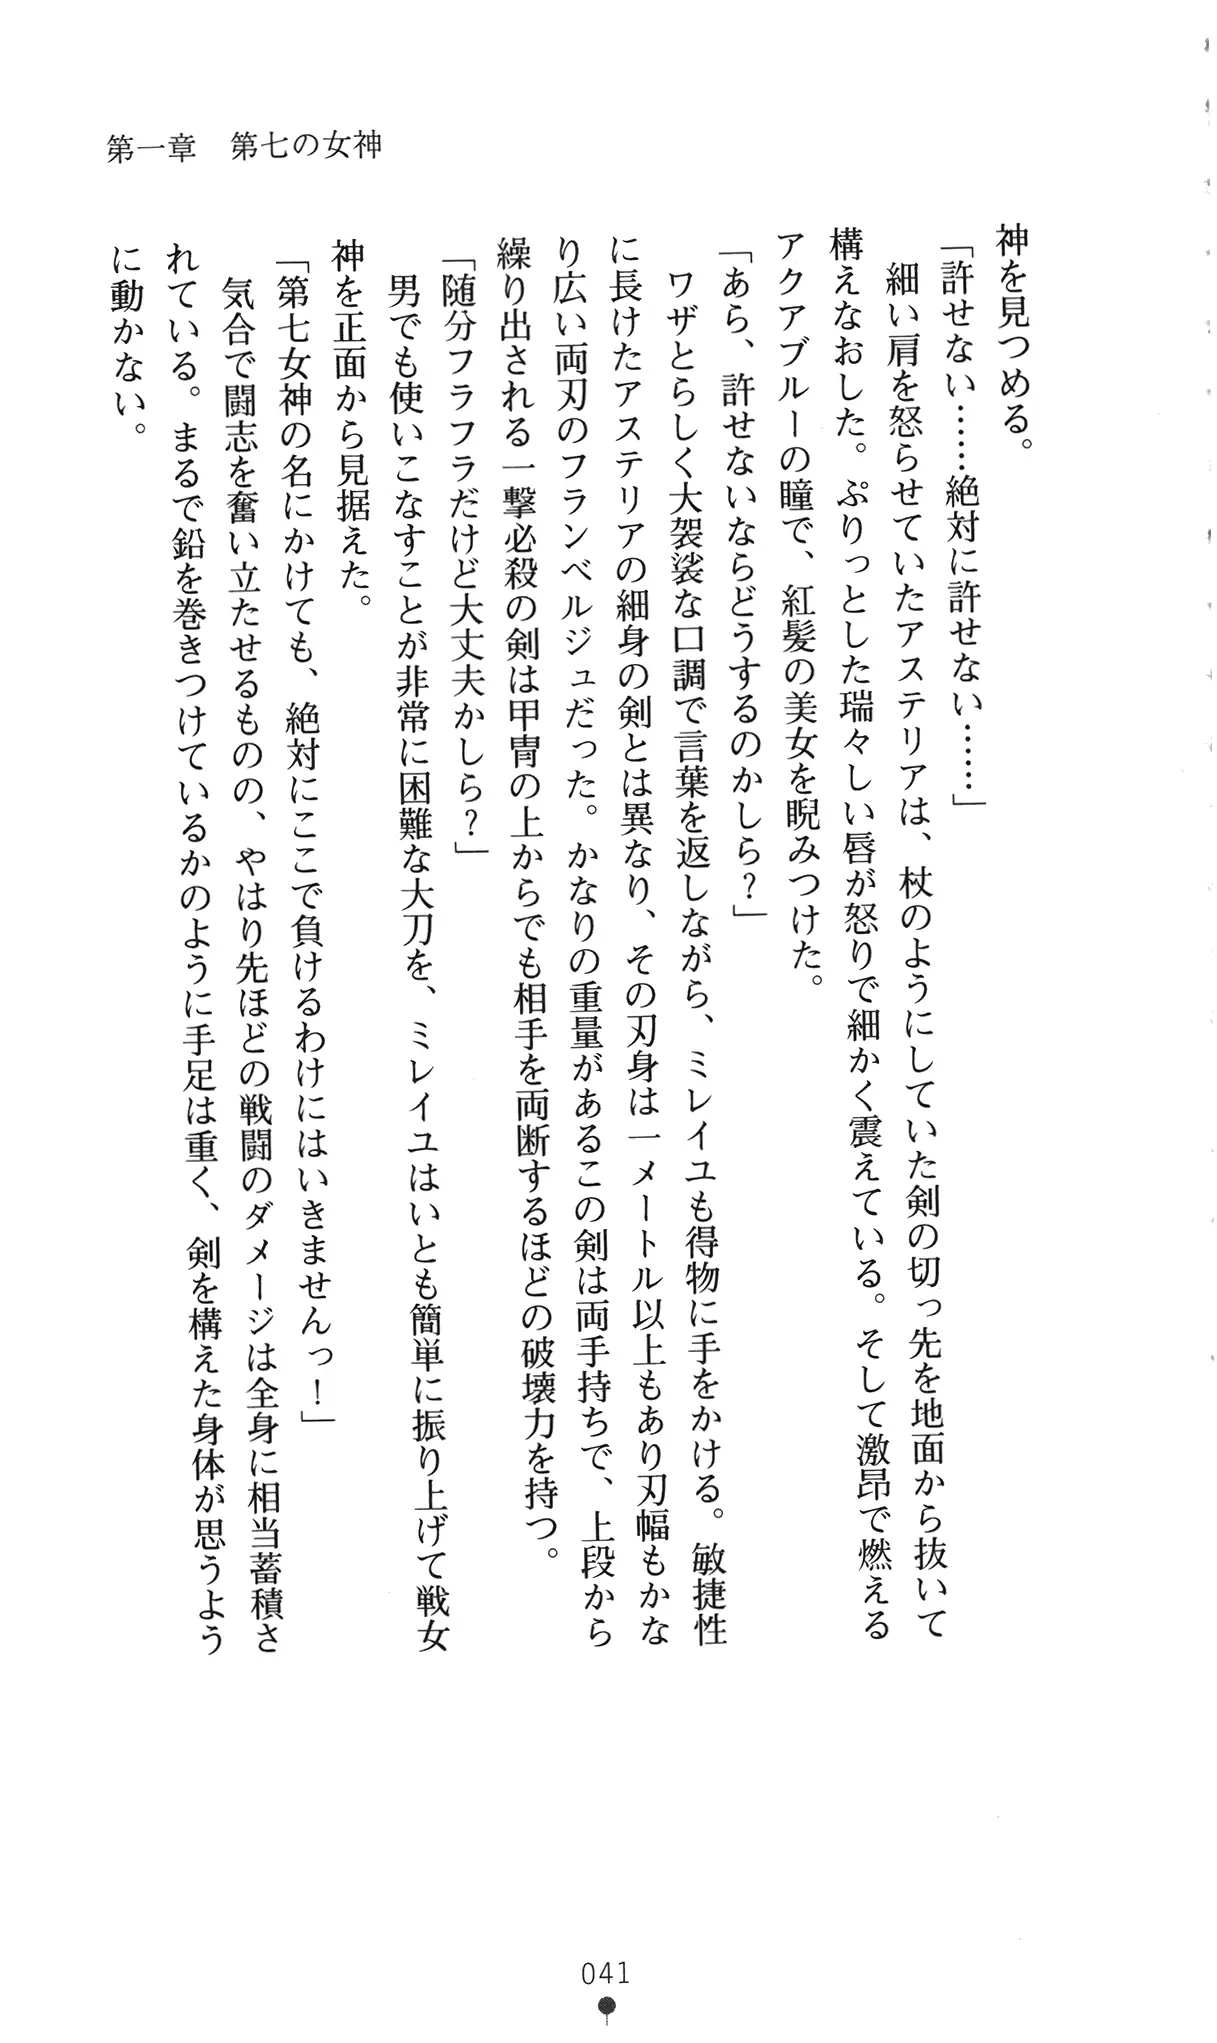 第一章　第七の女神
神を見つめる。
「許せない……絶対に許せない……」
　細い肩を怒らせていたアステリアは、杖のようにしていた剣の切っ先を地面から抜いて
構えなおした。ぷりっとした瑞々しい唇が怒りで細かく震えている。そして激昂で燃える
アクアブルーの瞳で、紅髪の美女を睨みつけた。
「あら、許せないならどうするのかしら？」
　ワザとらしく大袈裟な口調で言葉を返しながら、ミレイユも得物に手をかける。敏捷性
に長けたアステリアの細身の剣とは異なり、その刃身は一メートル以上もあり刃幅もかな
り広い両刃のフランベルジュだった。かなりの重量があるこの剣は両手持ちで、上段から
繰り出される一撃必殺の剣は甲冑の上からでも相手を両断するほどの破壊力を持つ。
「随分フラフラだけど大丈夫かしら？」
　男でも使いこなすことが非常に困難な大刀を、ミレイユはいとも簡単に振り上げて戦女
神を正面から見据えた。
「第七女神の名にかけても、絶対にここで負けるわけにはいきませんっ！」
　気合で闘志を奮い立たせるものの、やはり先ほどの戦闘のダメージは全身に相当蓄積さ
れている。まるで鉛を巻きつけているかのように手足は重く、剣を構えた身体が思うよう
に動かない。
041